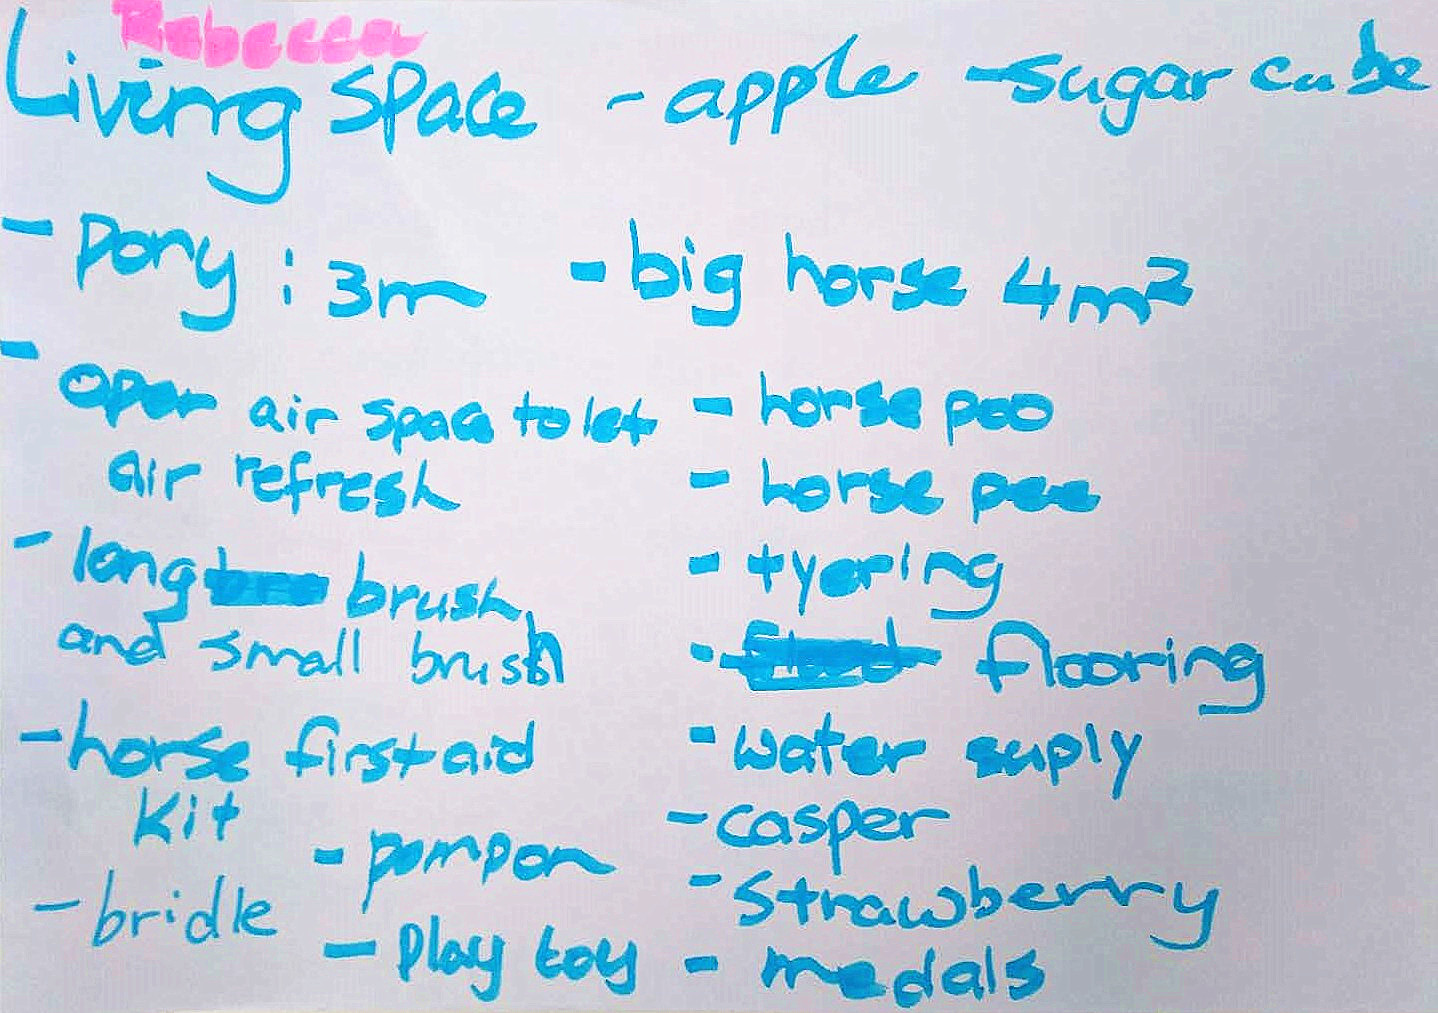 Rebecca
Living space - apple - sugar cube
- pony : 3m - big horse 4m²
- open air space to let
air refresh
- horse poo
- horse pee
- long brush
and small brush
- tyering
- flooring
- horse first aid
kit
- water suply
- casper
- pompon
- strawberry
- bridle
- play toy
- medals